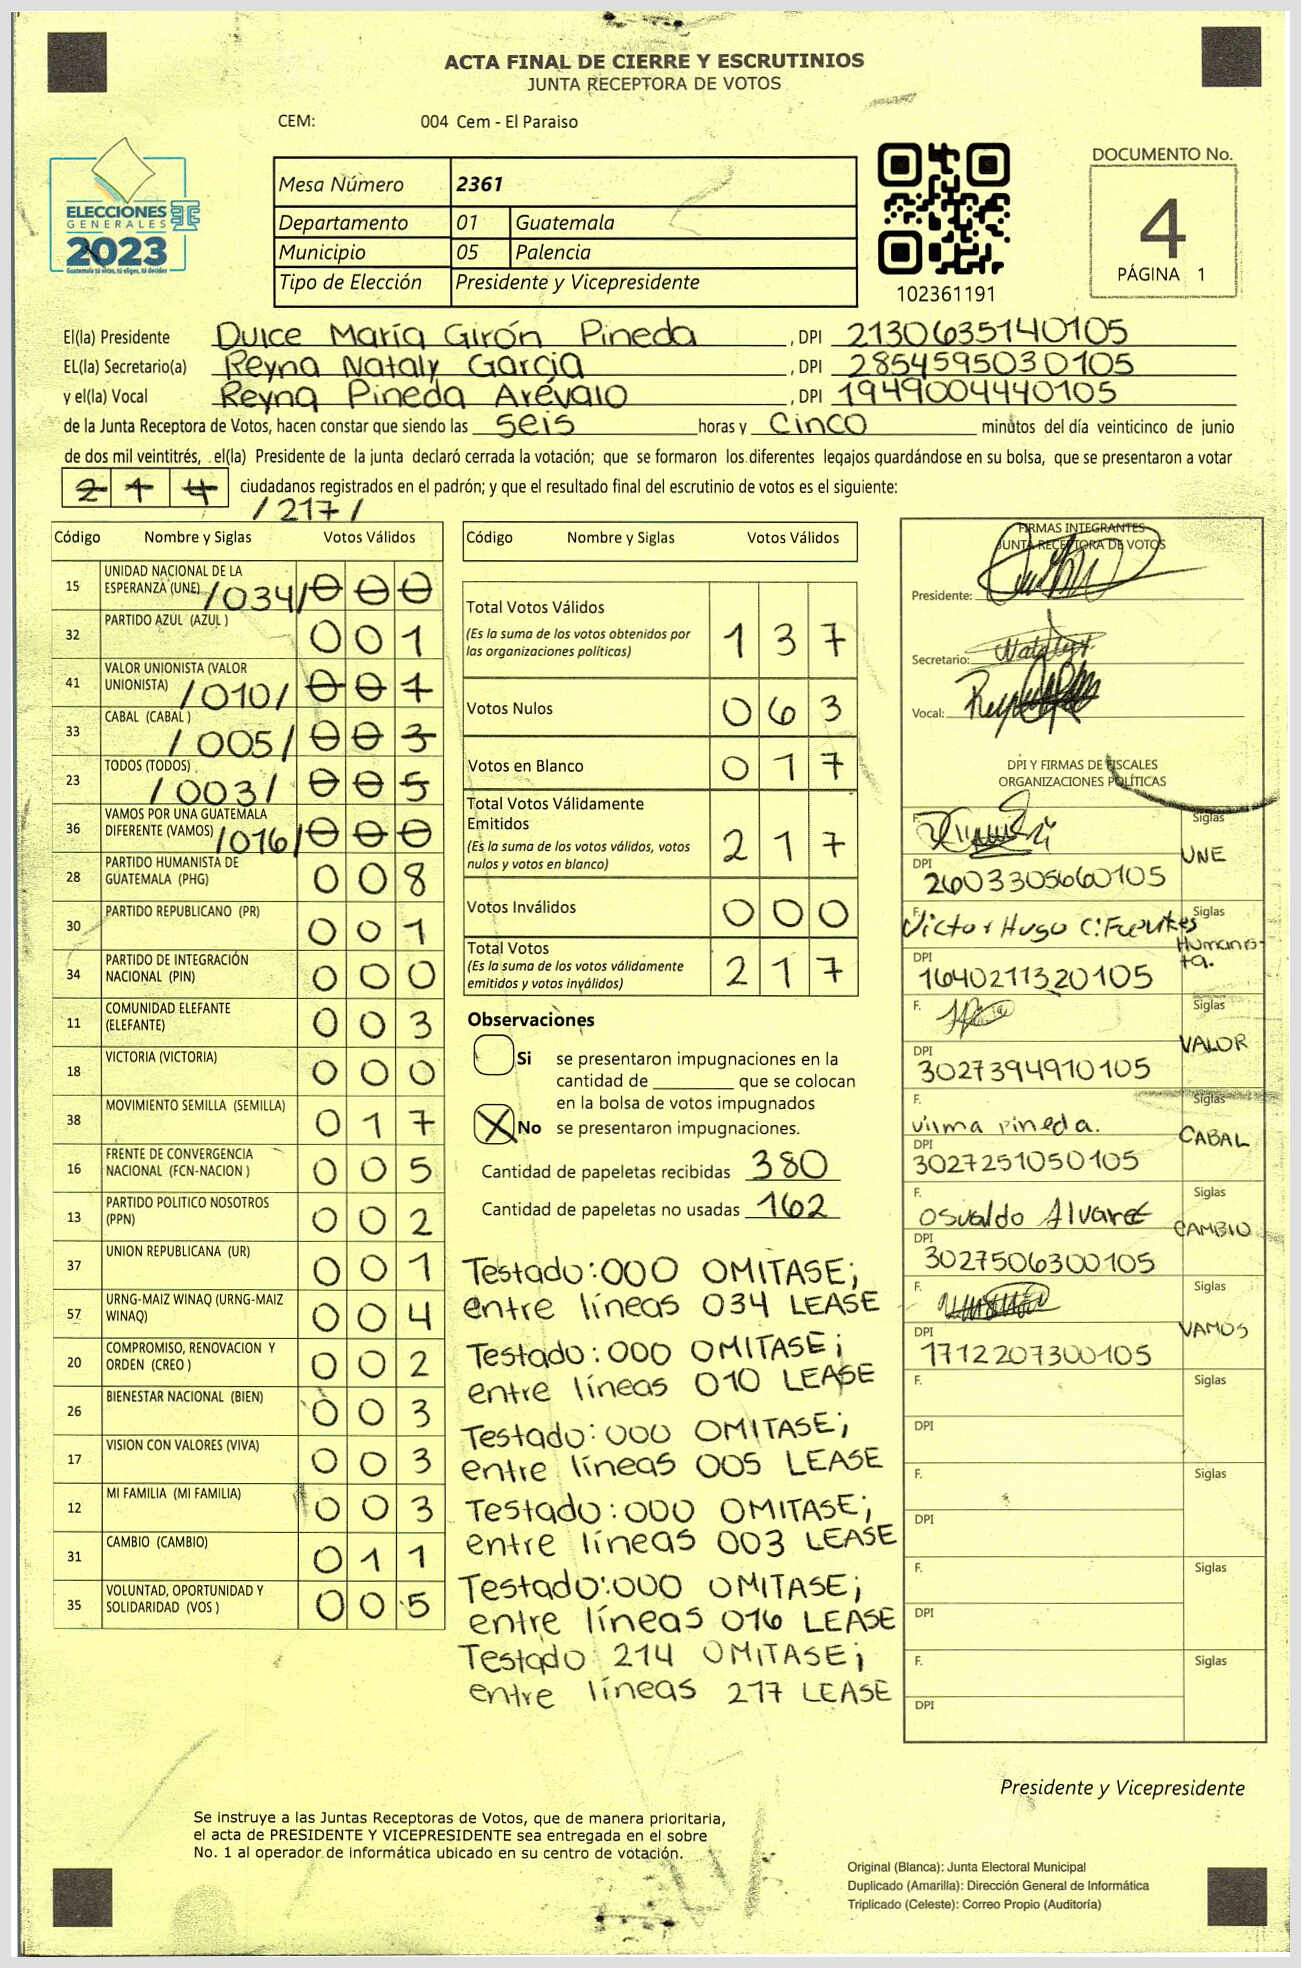 ACTA FINAL DE CIERRE Y ESCRUTINIOS
JUNTA RECEPTORA DE VOTOS
CEM: 004 Cem - El Paraiso
ELECCIONES
GENERALES
2023
Guatemala tú votas, tú eliges, tú decides
Mesa Número 2361
Departamento 01 Guatemala
Municipio 05 Palencia
Tipo de Elección Presidente y Vicepresidente
102361191
DOCUMENTO No.
4
PÁGINA 1
El(la) Presidente Dulce María Girón Pineda, DPI 2130635140105
EL(la) Secretario(a) Reyna Nataly Garcia, DPI 2854595030105
y el(la) Vocal Reyna Pineda Arévalo, DPI 1949004440105
de la Junta Receptora de Votos, hacen constar que siendo las seis horas y cinco minutos del día veinticinco de junio
de dos mil veintitrés, el(la) Presidente de la junta declaró cerrada la votación; que se formaron los diferentes legajos guardándose en su bolsa, que se presentaron a votar
214 ciudadanos registrados en el padrón; y que el resultado final del escrutinio de votos es el siguiente:
/217/
Código Nombre y Siglas Votos Válidos
15 UNIDAD NACIONAL DE LA ESPERANZA (UNE) /034/ 000
32 PARTIDO AZUL (AZUL) 001
41 VALOR UNIONISTA (VALOR UNIONISTA) /010/ 001
33 CABAL (CABAL) /005/ 003
23 TODOS (TODOS) /003/ 005
36 VAMOS POR UNA GUATEMALA DIFERENTE (VAMOS) /016/ 000
28 PARTIDO HUMANISTA DE GUATEMALA (PHG) 008
30 PARTIDO REPUBLICANO (PR) 001
34 PARTIDO DE INTEGRACIÓN NACIONAL (PIN) 000
11 COMUNIDAD ELEFANTE (ELEFANTE) 003
18 VICTORIA (VICTORIA) 000
38 MOVIMIENTO SEMILLA (SEMILLA) 017
16 FRENTE DE CONVERGENCIA NACIONAL (FCN-NACION) 005
13 PARTIDO POLITICO NOSOTROS (PPN) 002
37 UNION REPUBLICANA (UR) 001
57 URNG-MAIZ WINAQ (URNG-MAIZ WINAQ) 004
20 COMPROMISO, RENOVACION Y ORDEN (CREO) 002
26 BIENESTAR NACIONAL (BIEN) 003
17 VISION CON VALORES (VIVA) 003
12 MI FAMILIA (MI FAMILIA) 003
31 CAMBIO (CAMBIO) 011
35 VOLUNTAD, OPORTUNIDAD Y SOLIDARIDAD (VOS) 005
Código Nombre y Siglas Votos Válidos
Total Votos Válidos
(Es la suma de los votos obtenidos por las organizaciones políticas) 137
Votos Nulos 063
Votos en Blanco 017
Total Votos Válidamente Emitidos
(Es la suma de los votos válidos, votos nulos y votos en blanco) 217
Votos Inválidos 000
Total Votos
(Es la suma de los votos válidamente emitidos y votos inválidos) 217
Observaciones
Si se presentaron impugnaciones en la
cantidad de ________ que se colocan
en la bolsa de votos impugnados
X No se presentaron impugnaciones.
Cantidad de papeletas recibidas 380
Cantidad de papeletas no usadas 162
Testado: 000 OMITASE;
entre líneas 034 LEASE
Testado: 000 OMITASE;
entre líneas 010 LEASE
Testado: 000 OMITASE;
entre líneas 005 LEASE
Testado: 000 OMITASE;
entre líneas 003 LEASE
Testado: 000 OMITASE;
entre líneas 016 LEASE
Testado 214 OMITASE;
entre líneas 217 LEASE
FIRMAS INTEGRANTES
JUNTA RECEPTORA DE VOTOS
Presidente:
Secretario:
Vocal:
DPI Y FIRMAS DE FISCALES
ORGANIZACIONES POLÍTICAS
F. Siglas UNE
DPI 2603305660105
F. Victor Hugo Cifuentes Siglas Humanista.
DPI 1640211320105
F. Siglas VALOR
DPI 3027394910105
F. Vilma Pineda. Siglas CABAL
DPI 3027251050105
F. Osvaldo Alvarez Siglas CAMBIO
DPI 3027506300105
F. Siglas VAMOS
DPI 1712207300105
F. Siglas
DPI
F. Siglas
DPI
F. Siglas
DPI
F. Siglas
DPI
Presidente y Vicepresidente
Se instruye a las Juntas Receptoras de Votos, que de manera prioritaria,
el acta de PRESIDENTE Y VICEPRESIDENTE sea entregada en el sobre
No. 1 al operador de informática ubicado en su centro de votación.
Original (Blanca): Junta Electoral Municipal
Duplicado (Amarilla): Dirección General de Informática
Triplicado (Celeste): Correo Propio (Auditoría)